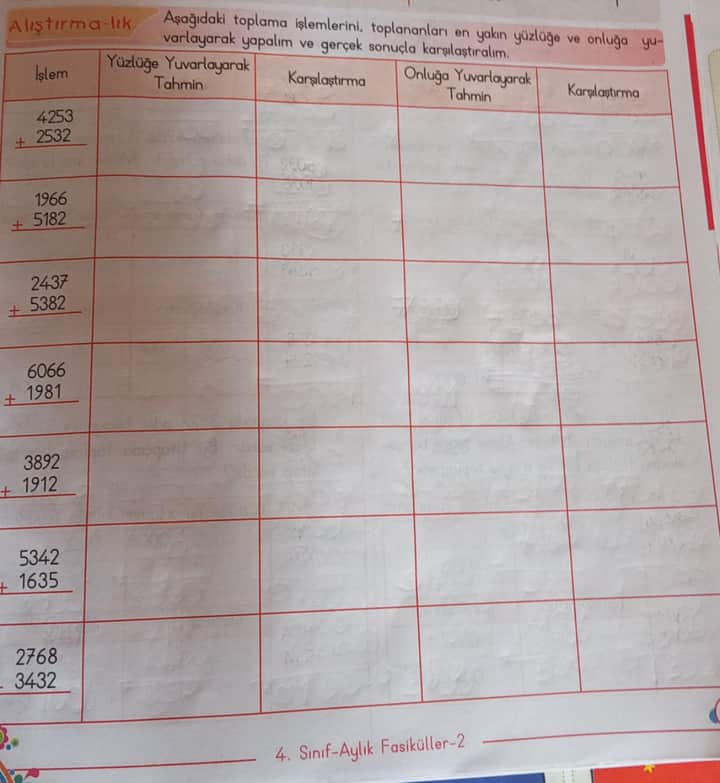 Alıştırma-lık
Aşağıdaki toplama işlemlerini, toplananları en yakın yüzlüğe ve onluğa yu-
varlayarak yapalım ve gerçek sonuçla karşılaştıralım.
İşlem
Yüzlüğe Yuvarlayarak
Tahmin
Karşılaştırma
Onluğa Yuvarlayarak
Tahmin
Karşılaştırma
4253
+ 2532
1966
+ 5182
2437
+ 5382
6066
+ 1981
3892
+ 1912
5342
+ 1635
2768
3432
4. Sınıf-Aylık Fasiküller-2